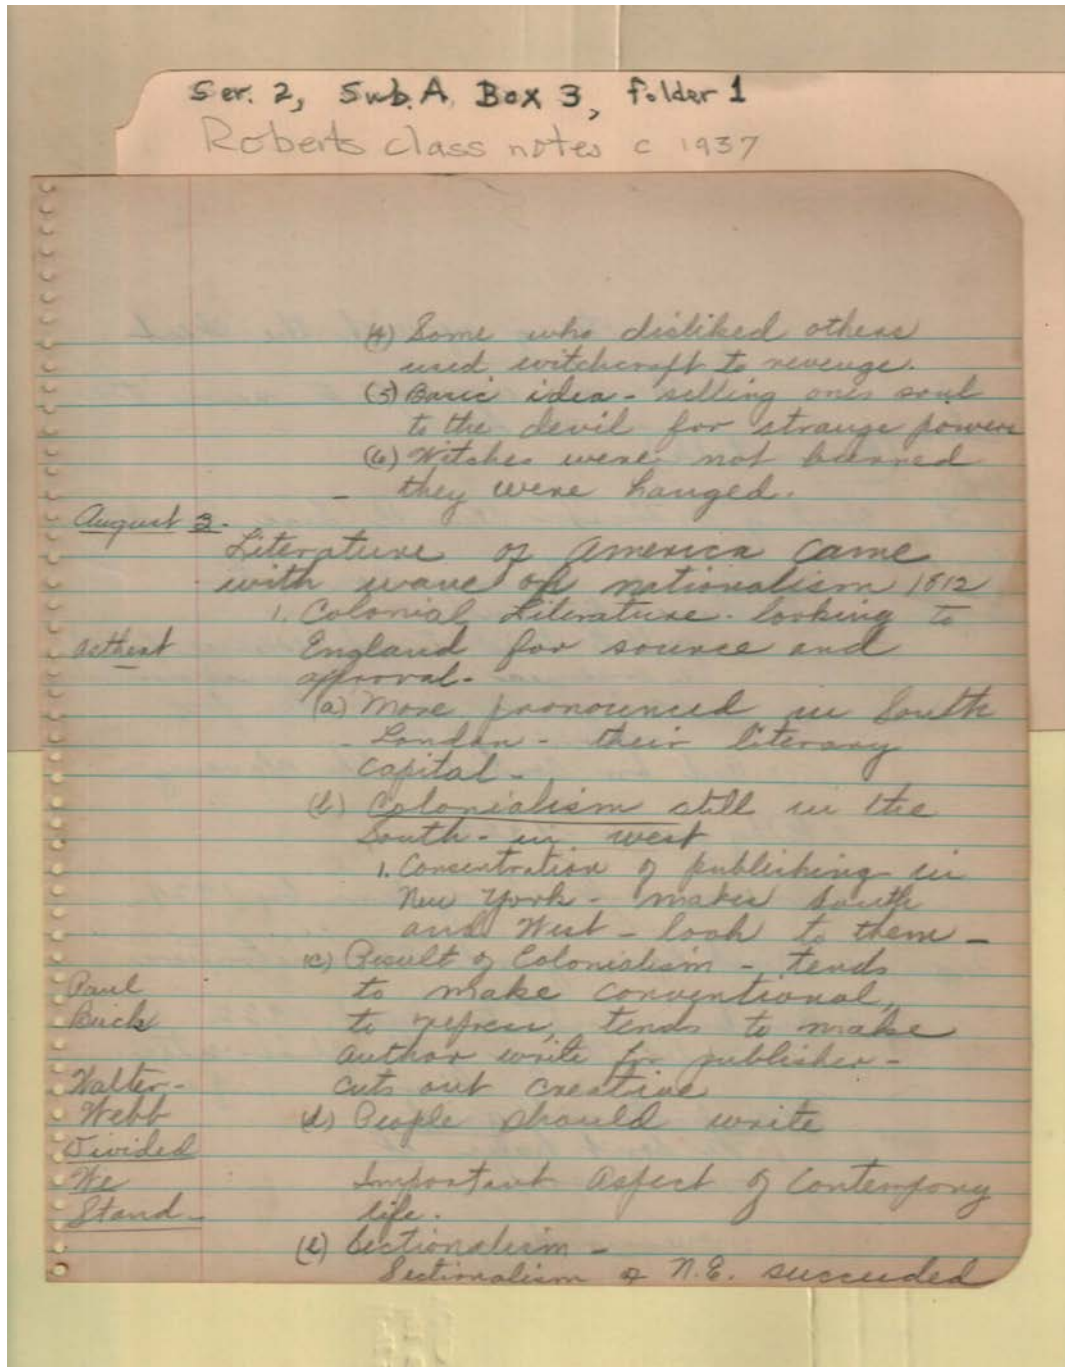 Ser. 2, Sub. A, Box 3, folder 1
Roberts class notes c 1937
(4) Some who disliked others
used witchcraft to revenge.
(5) Basic idea - selling ones soul
to the devil for strange powers
(6) Witches were not burned
they were hanged.
August 3.
Literature of America came
with wave of nationalism 1812
1. Colonial Literature - looking to
England for source and
approval -
(a) More pronounced in South
- London - their literary
capital -
(b) Colonialism still in the
South - in west
1. Concentration of publishing in
New York - makes South
and West - look to them -
(c) Result of Colonialism - tends
Paul
to make conventional,
Buck
to repress, tends to make
author write for publisher -
Walter -
cuts out creative
Webb
(d) People should write
Divided
We
Important Aspect of Contempory
Stand -
life.
(e) Sectionalism -
Sectionalism of N.E. succeeded